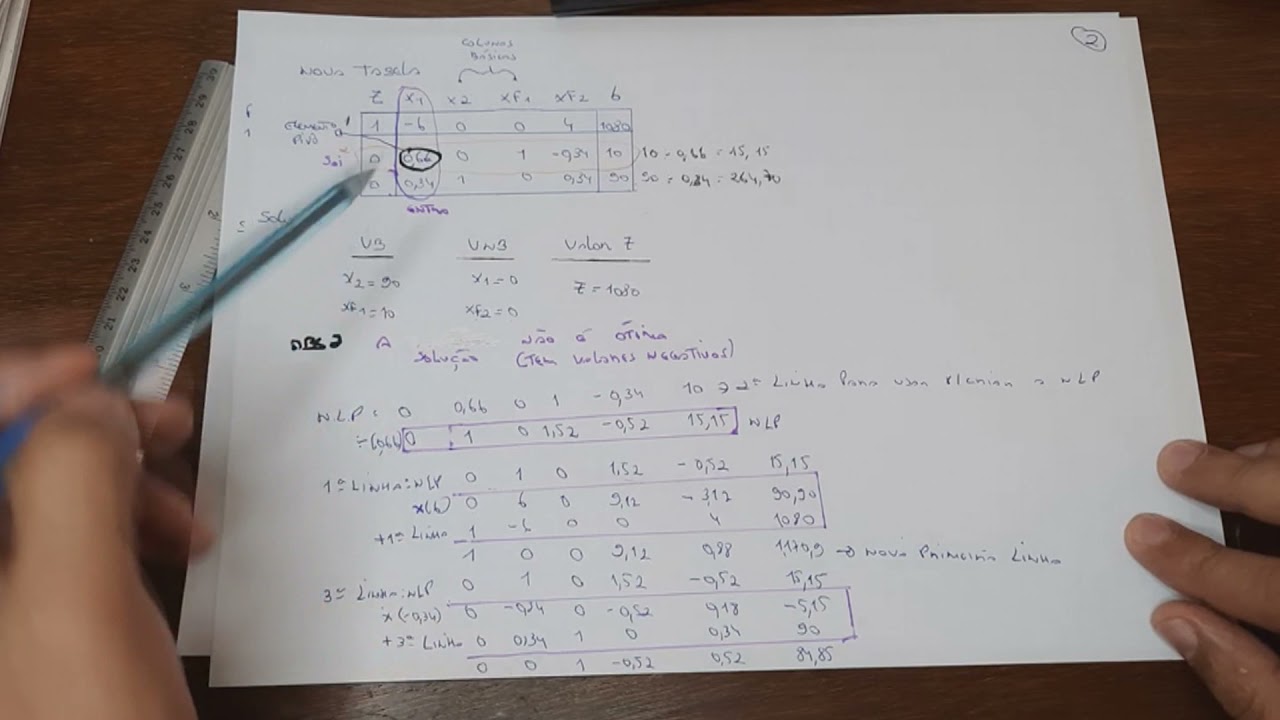 2
COLUNAS
BÁSICAS
NOVA TABELA
Z X1 X2 XF1 XF2 b
ELEMENTO PIVÔ 1 -6 0 0 4 1080
SAI 0 0,66 0 1 -0,34 10 10 ÷ 0,66 = 15,15
0 0,34 1 0 0,34 90 90 ÷ 0,34 = 264,70
ENTRA
VB VNB Valor Z
X2 = 90 X1 = 0 Z = 1080
XF1 = 10 XF2 = 0
A SOLUÇÃO NÃO É ÓTIMA
(TEM VALORES NEGATIVOS)
N.L.P: 0 0,66 0 1 -0,34 10 → 2ª LINHA PARA USAR NLP
÷(0,66) 0 1 0 1,52 -0,52 15,15 NLP
1ª LINHA: NLP 0 1 0 1,52 -0,52 15,15
x(6) 0 6 0 9,12 -3,12 90,90
+1ª LINHA 1 -6 0 0 4 1080
1 0 0 9,12 0,88 1170,9 → NOVA PRIMEIRA LINHA
3ª LINHA: NLP 0 1 0 1,52 -0,52 15,15
x(-0,34) 0 -0,34 0 -0,52 0,18 -5,15
+3ª LINHA 0 0,34 1 0 0,34 90
0 0 1 -0,52 0,52 84,85